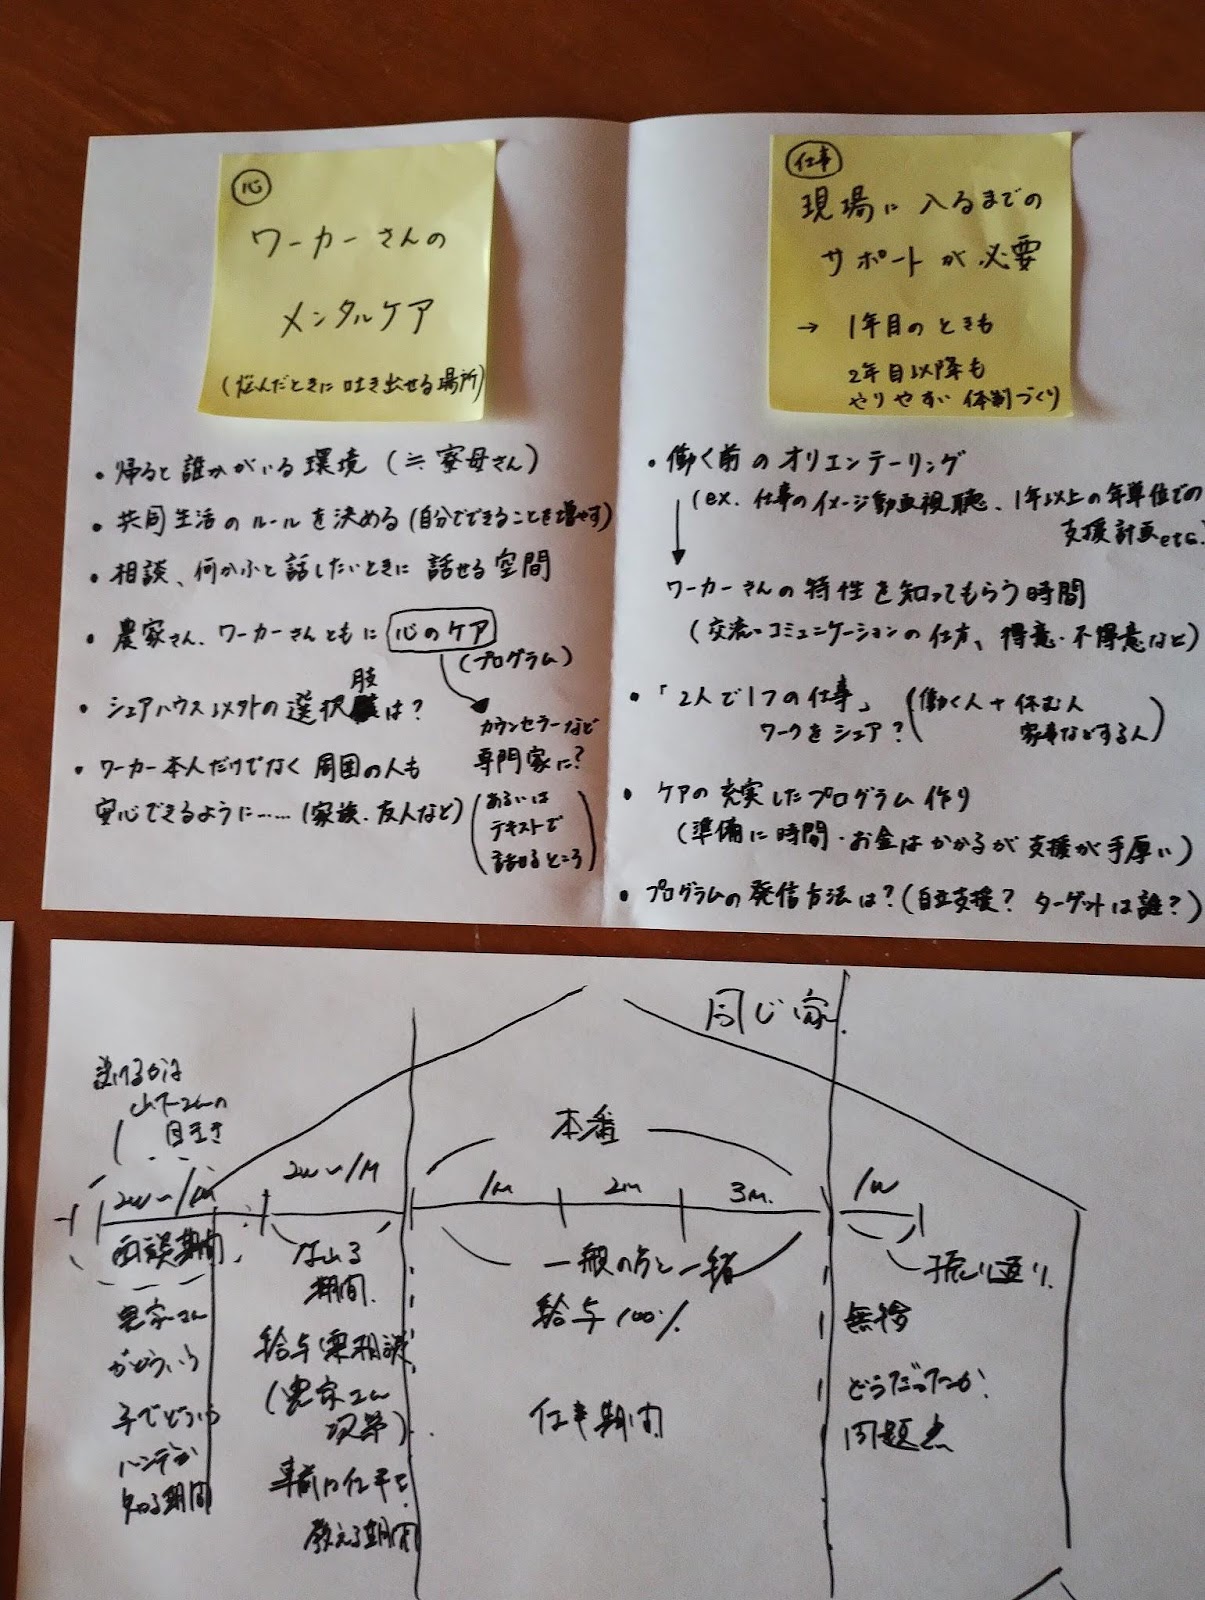 心
ワーカーさんの
メンタルケア
(悩んだときに吐き出せる場所)
・帰ると誰かがいる環境(≒寮母さん)
・共同生活のルールを決める(自分でできることを増やす)
・相談、何かふと話したいときに話せる空間
・農家さん、ワーカーさんともに心のケア
(プログラム)
カウンセラーなど
専門家に?
(あるいは
テキストで
話せるところ)
・シェアハウス以外の選択肢は?
・ワーカー本人だけでなく周囲の人も
安心できるように……(家族、友人など)
仕事
現場に入るまでの
サポートが必要
→ 1年目のときも
2年目以降も
やりやすい体制づくり
・働く前のオリエンテーリング
(ex. 仕事のイメージ動画視聴、1年以上の年単位での
支援計画etc.)
ワーカーさんの特性を知ってもらう時間
(交流・コミュニケーションの仕方、得意・不得意など)
・「2人で1つの仕事」
ワークをシェア?
(働く人+休む人
家事などする人)
・ケアの充実したプログラム作り
(準備に時間・お金はかかるが支援が手厚い)
・プログラムの発信方法は?(自立支援? ターゲットは誰?)
同じ家
受けるかは
目利き
本番
2w〜1M
2w〜1M
1M
2M
3M
1w
面談期間
農家さん
がどういう
子でどういう
ハンデか
知る期間
期間
給与(要相談)
(農家さん
次第)
事前に仕事を
教える期間
一般の方と一緒
給与100%
仕事期間
振り返り
無償
どうだったか
問題点